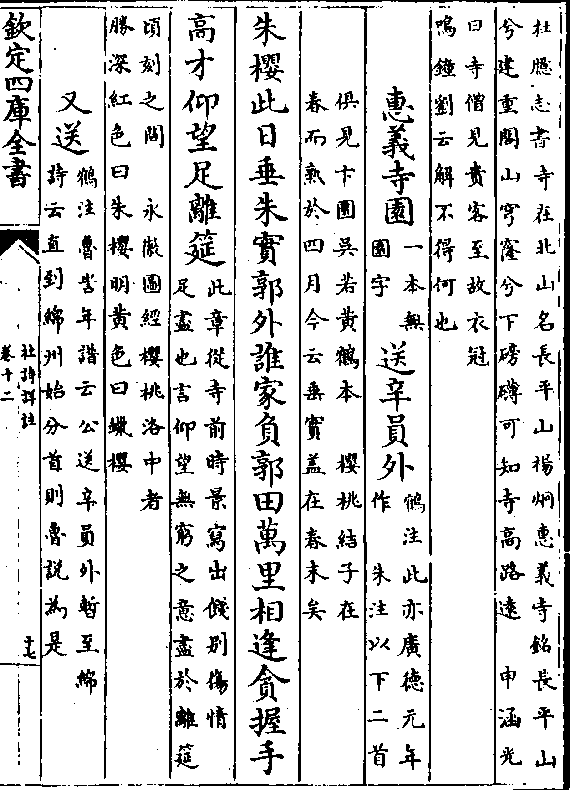 杜臆志書寺在北山名長平山楊烱惠義寺銘長平山
兮建重閣山穹窿兮下磅礴可知寺高路遠 申涵光
曰寺僧見貴客至故衣冠
鳴鐘劉云解不得何也
惠義寺園 一本無園字 送辛員外 鶴注此亦廣德元年作 朱注以下二首
俱見卞圜吳若黄鶴本 櫻桃結子在
春而熟於四月今云垂實蓋在春末矣
朱櫻此日垂朱實郭外誰家負郭田萬里相逢貪握手
高才仰望足離筵 此章從寺前時景寫出餞别傷情足盡也言仰望無窮之意盡於離筵
頃刻之間 永徽圖經櫻桃洛中者
勝深紅色曰朱櫻明黄色曰蠟櫻
又送 鶴注魯訔年譜云公送辛員外暫至綿詩云直到綿州始分首則魯說為是
欽定四庫全書
杜詩詳註
卷十二
十七